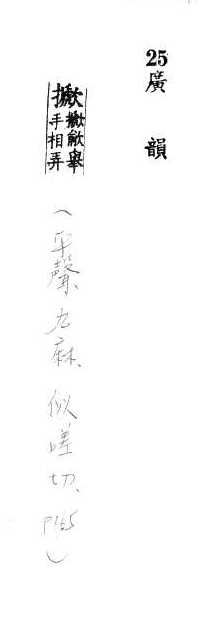 25 廣韻
擨 擨歈舉手相弄
(平聲、九麻、似嗟切、P165)